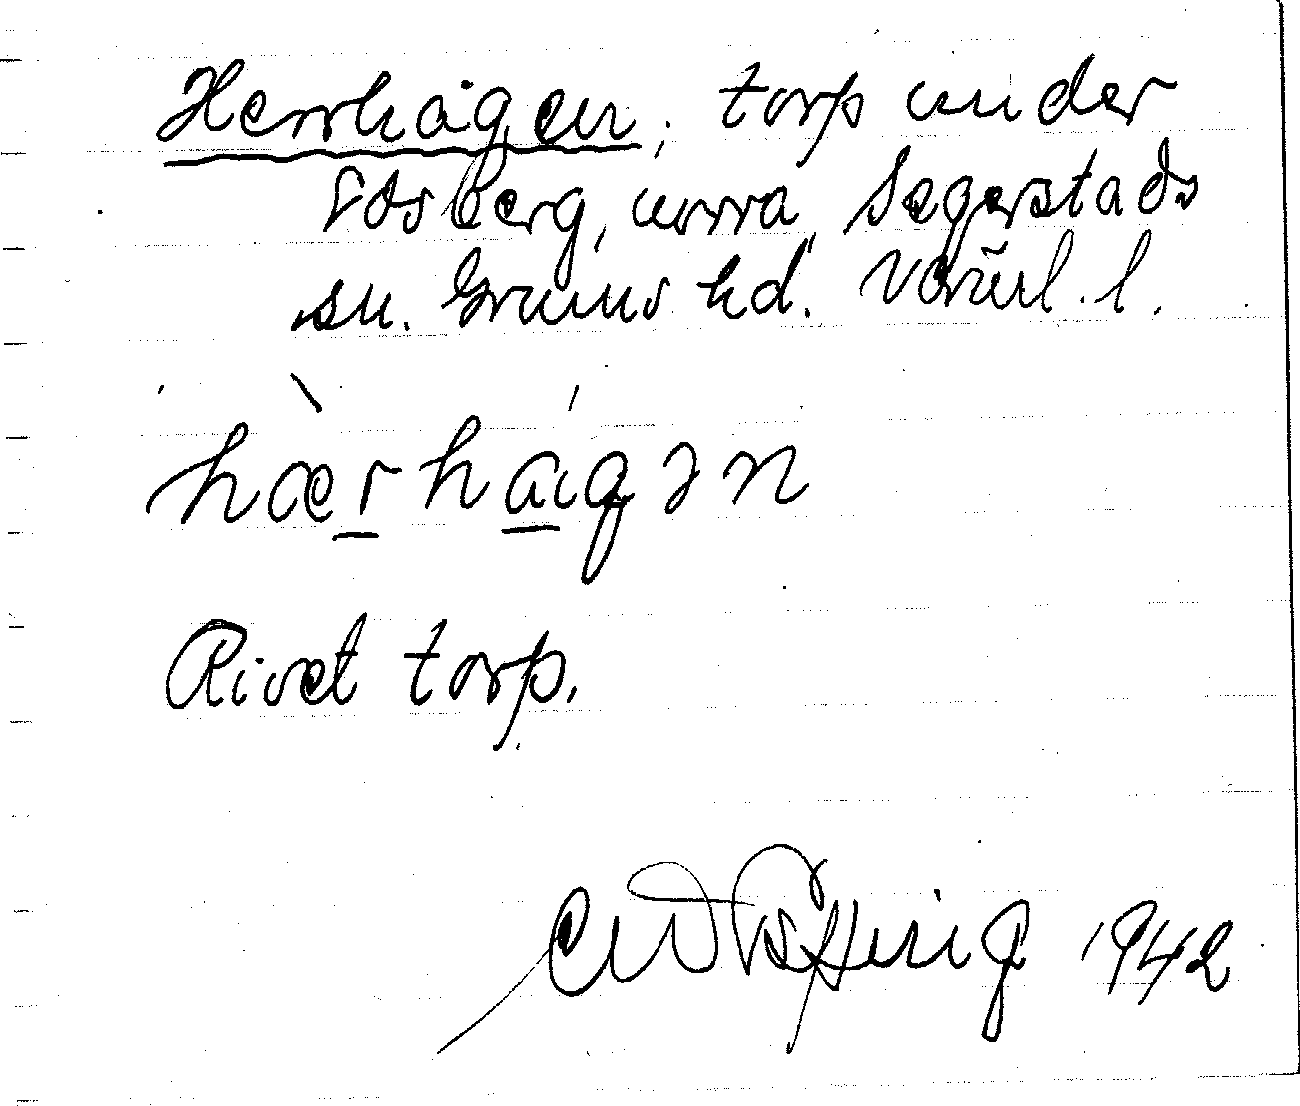 Herrhagen, torp under
Edsberg, norra Segerstads
sn. Grums hd. Värml. l.
hærhagən
Rivet torp.
1942